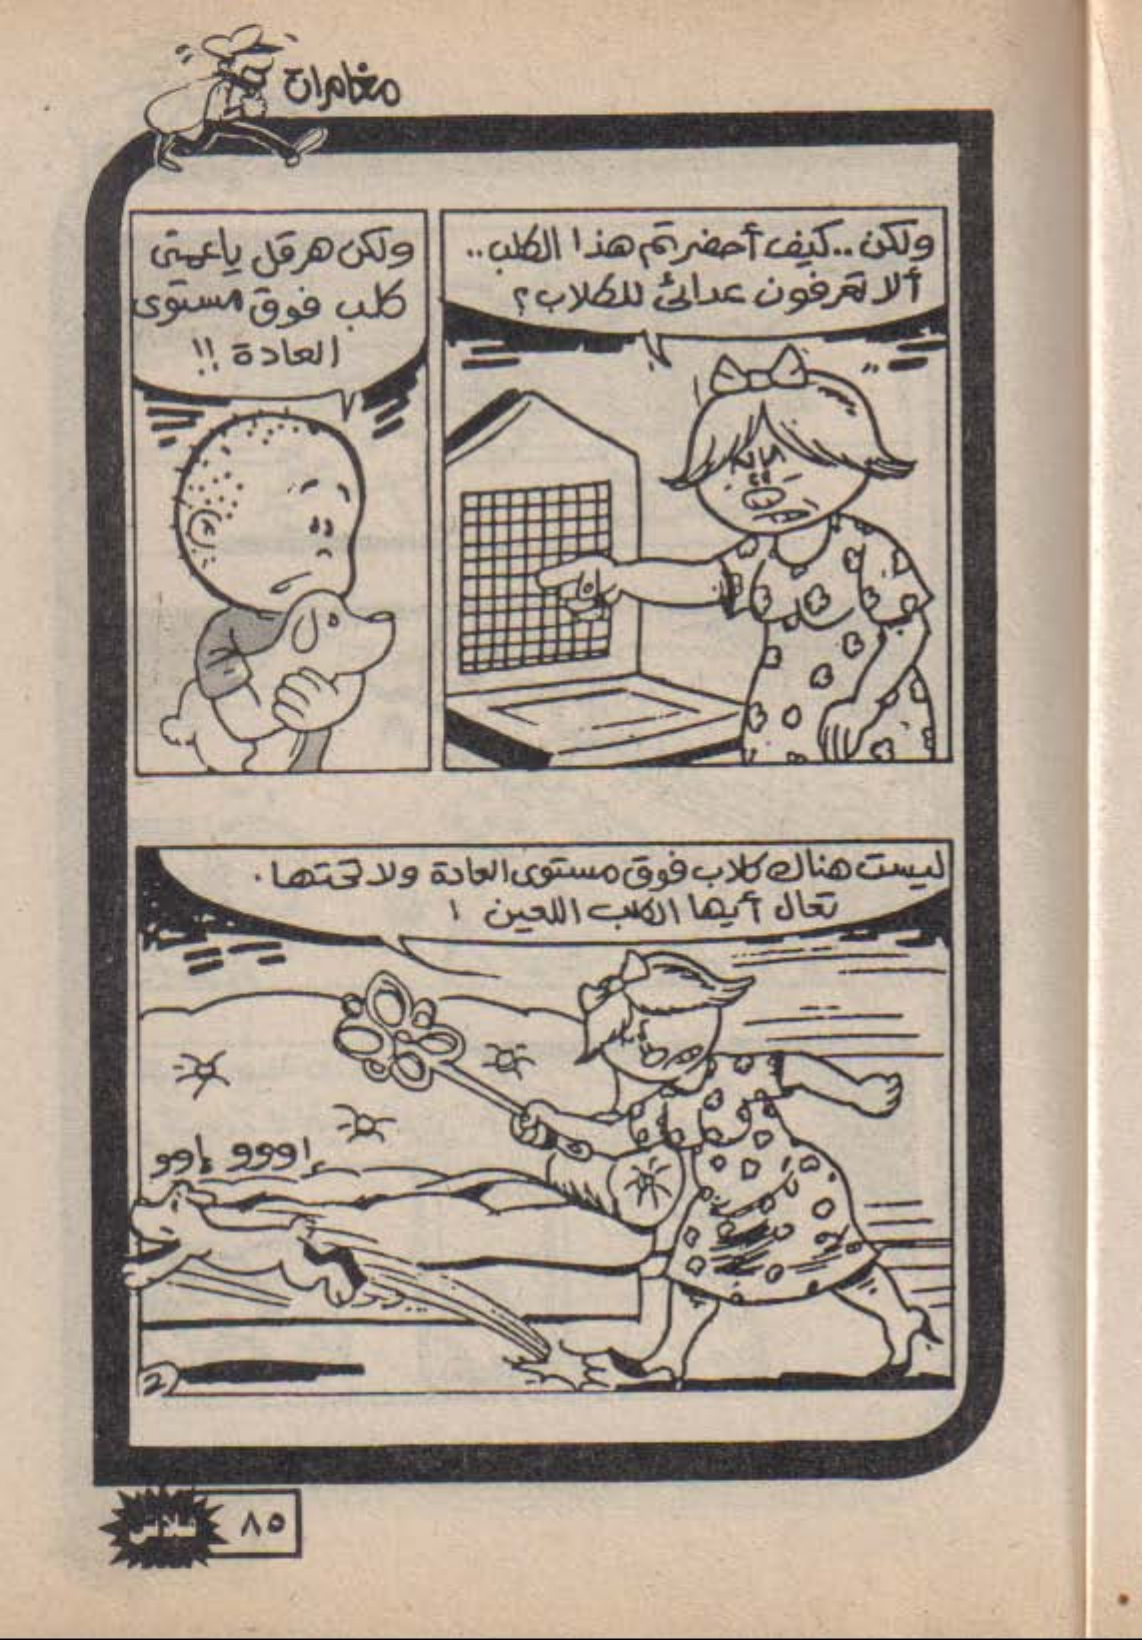 مغامرات
ولكن.. كيف أحضرتم هذا الكلب..
ألا تعرفون عدائي للكلاب؟
ولكن هرقل يا عمتي
كلب فوق مستوى
العادة !!
ليست هناك كلاب فوق مستوى العادة ولا تحتها.
تعال أيها الكلب اللعين !
إووو إوو
2
٨٥